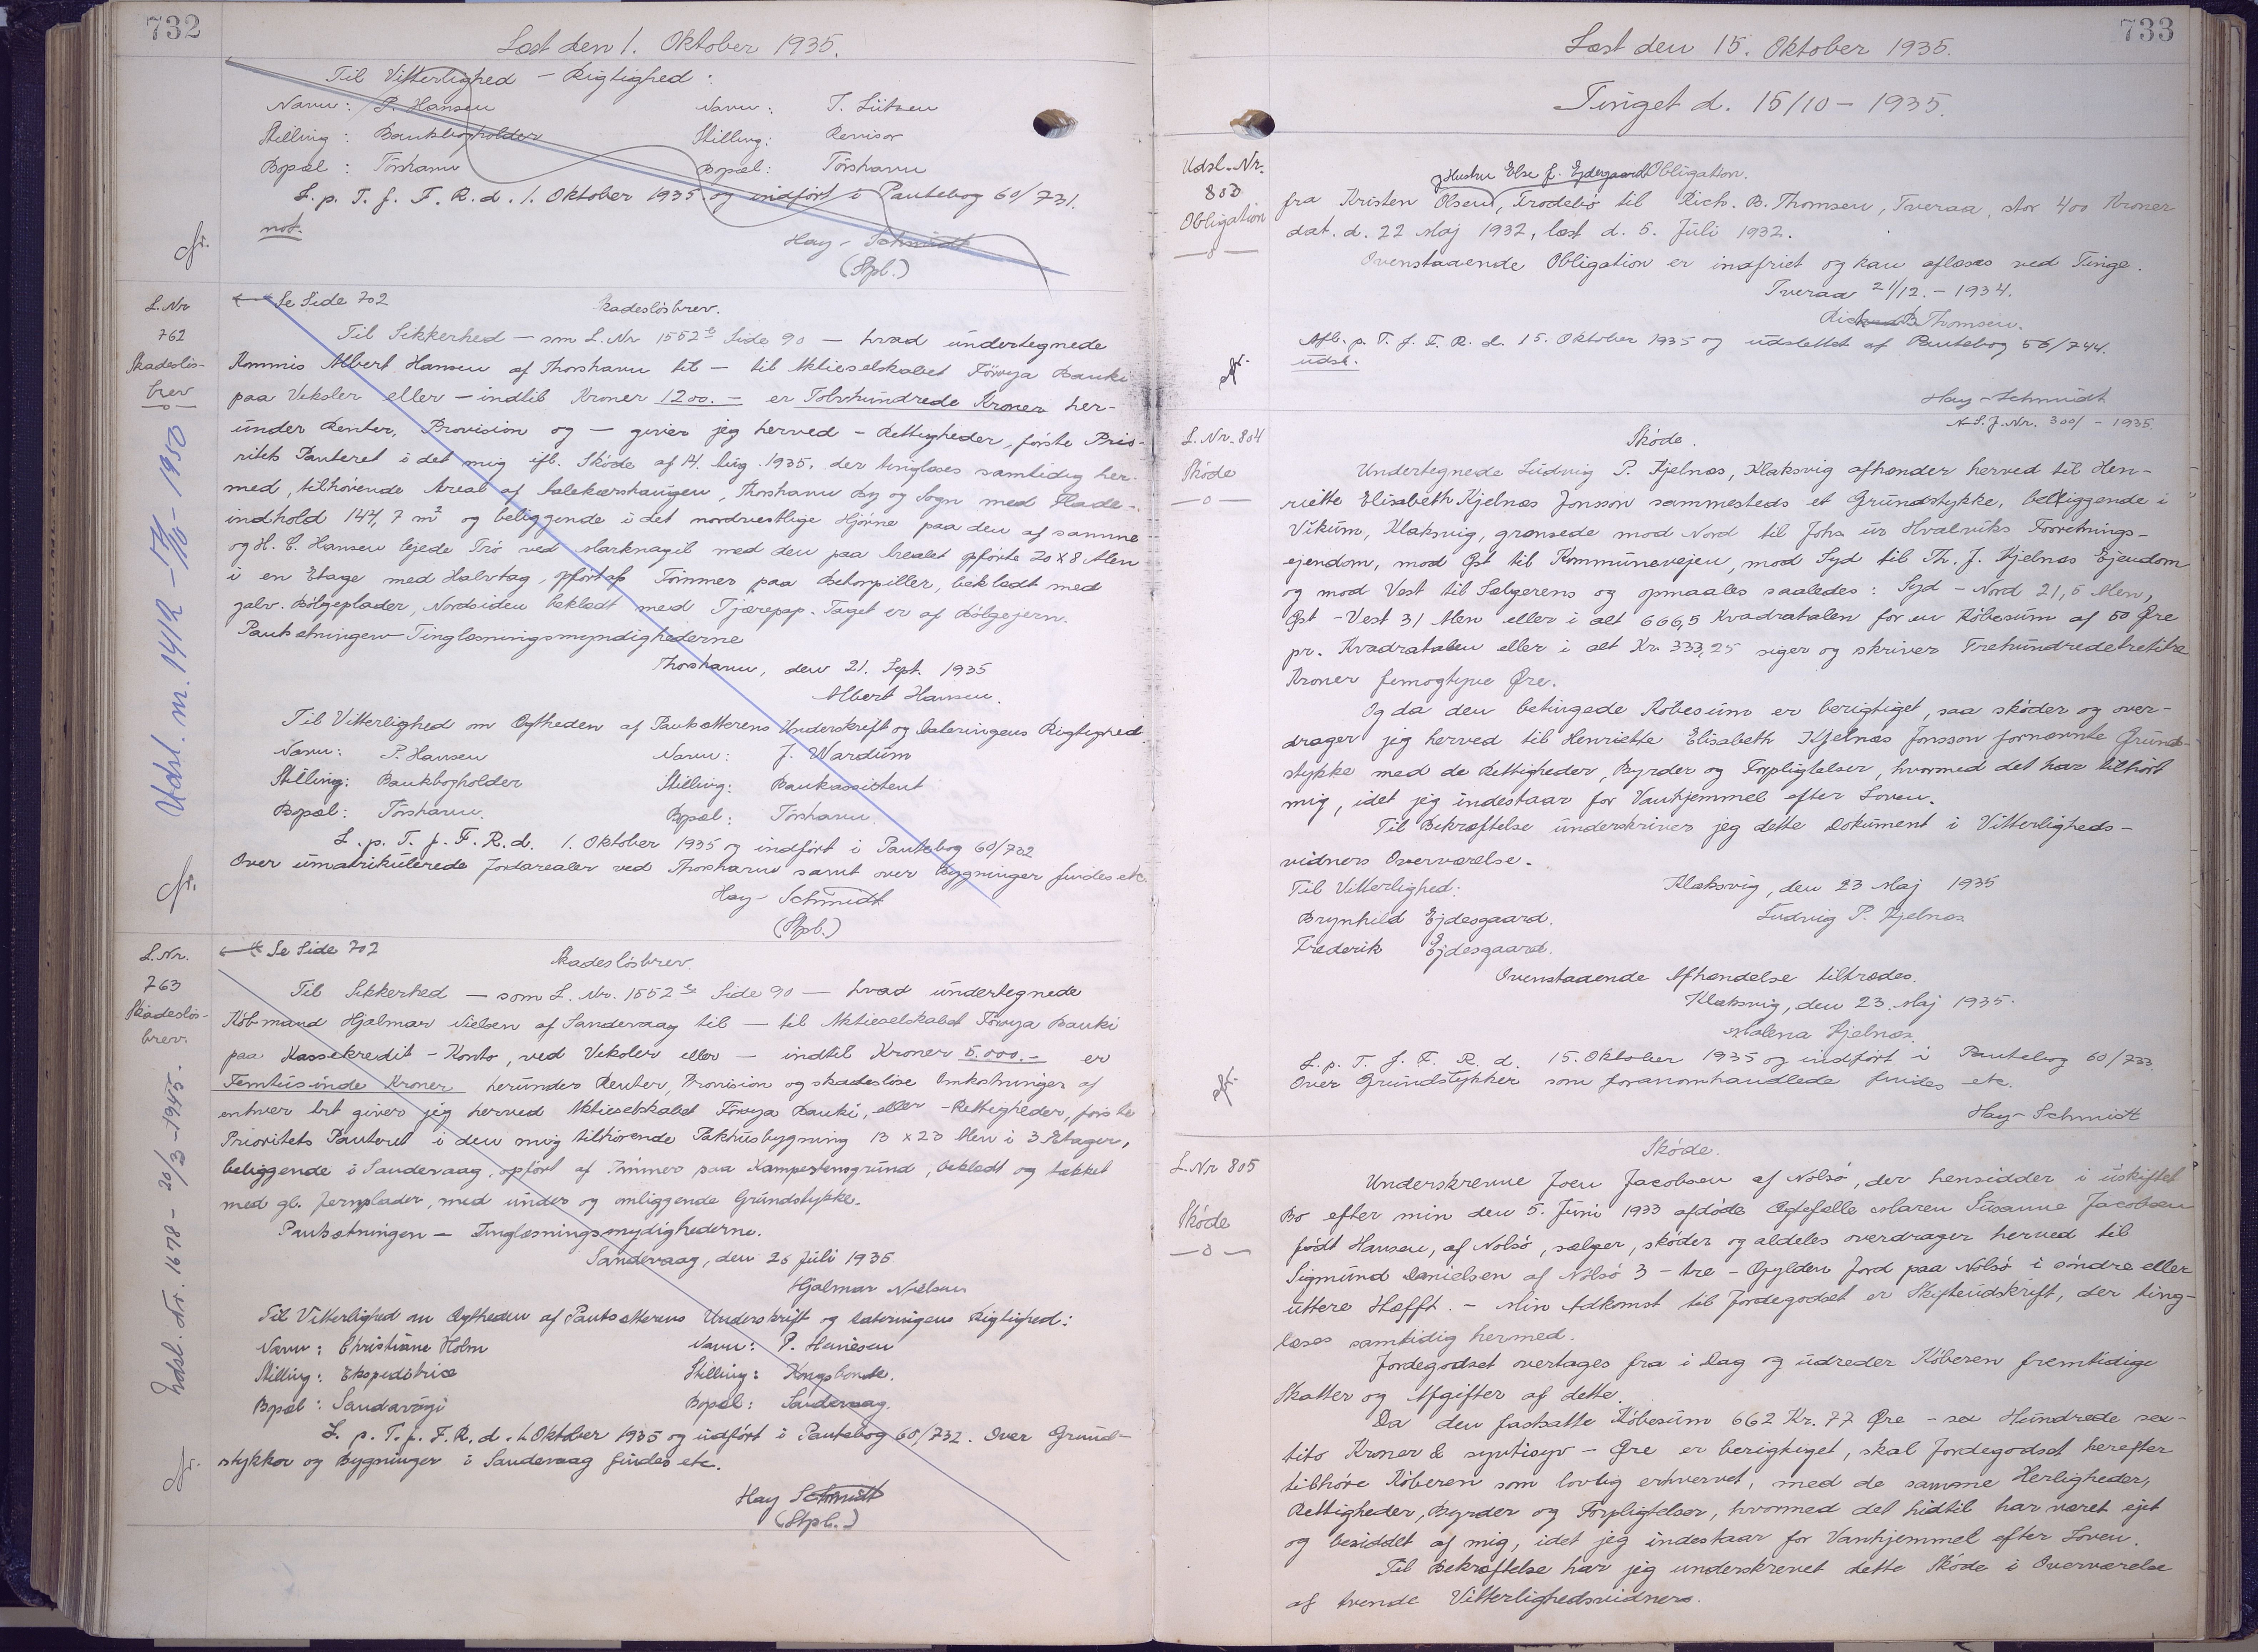 732
Læst den 1. Oktober 1935.
Til Vitterlighed – Rigtighed:
Navn: P. Hansen Navn: T. Lützen
Stilling: Bankbogholder Stilling: Revisor
Bopæl: Tórshavn Bopæl: Tórshavn
L. p. T. f. F. R. d. 1. Oktober 1935 og indført i Pantebog 60/731.
not.
Hay-Schmidt
(Stpl.)
L. Nr
762
Skadesløs-
brev
Udsl. nr. 1412 – 17/10 – 1950
← Se Side 702
Skadesløsbrev.
Til Sikkerhed – som L. Nr 1552 Side 90 – hvad undertegnede
Kommis Albert Hansen af Thorshavn til – til Aktieselskabet Föroya Banki
paa Veksler eller – indtil Kroner 1200.- er Tolvhundrede Kroner her-
under Renter, Provision og – giver jeg herved – Rettigheder, første Prio-
ritets Panteret i det mig ifl. Skøde af 14. Aug. 1935, der tinglæses samtidig her-
med, tilhørende Areal af Salekærshaugen, Thorshavn By og Sogn med Flade-
indhold 147,7 m² og beliggende i det nordvestlige Hjørne paa den af samme
og H. C. Hansen lejede Trø ved Marknagil med den paa Arealet opførte 20 x 8 Alen
i en Etage med Halvtag, opført af Tømmer paa Betonpiller, beklædt med
galv. Bølgeplader, Nordsiden beklædt med Tjærepap. Taget er af Bølgejern.
Pantsætningen – Tinglæsningsmyndighederne
Thorshavn, den 21. Sept. 1935
Albert Hansen.
Til Vitterlighed om Ægtheden af Pantsætterens Underskrift og Dateringens Rigtighed.
Navn: P. Hansen Navn: J. Wardum
Stilling: Bankbogholder Stilling: Bankassistent
Bopæl: Tórshavn. Bopæl: Tórshavn.
L. p. T. f. F. R. d. 1. Oktober 1935 og indført i Pantebog 60/732
Over umatrikulerede Jordarealer ved Thorshavn samt over Bygninger findes etc.
Hay-Schmidt
(Stpl.)
L. Nr.
763
Skadesløs-
brev.
Udsl. Nr. 1678 – 20/3 – 1945.
← Se Side 702
Skadesløsbrev.
Til Sikkerhed – som L. Nr. 1552 Side 90 – hvad undertegnede
Købmand Hjalmar Nielsen af Sandevaag til – til Aktieselskabet Föroya Banki
paa Kassekredit-Konto, ved Veksler eller – indtil Kroner 5.000.- er
Femtusinde Kroner herunder Renter, Provision og skadesløse Omkostninger af
enhver Art giver jeg herved Aktieselskabet Föroya Banki, eller – Rettigheder, første
Prioritets Panteret i den mig tilhørende Pakhusbygning 13 x 20 Alen i 3 Etager,
beliggende i Sandevaag, opført af Tømmer paa Kampestensgrund, beklædt og tækket
med gl. Jernplader, med under og omliggende Grundstykke.
Pantsætningen – Tinglæsningsmydighederne.
Sandevaag, den 26 Juli 1935
Hjalmar Nielsen
Til Vitterlighed om Ægtheden af Pantsætterens Underskrift og Dateringens Rigtighed:
Navn: Christiane Holm Navn: P. Heinesen
Stilling: Ekspeditrice Stilling: Kongsbonde.
Bopæl: Sandavági Bopæl: Sandevaag.
L. p. T. f. F. R. d. 1. Oktober 1935 og indført i Pantebog 60/732. Over Grund-
stykker og Bygninger i Sandevaag findes etc.
Hay Schmidt
(Stpl.)
733
Læst den 15. Oktober 1935.
Tinget d. 15/10 – 1935.
Udsl.-Nr.
803
Obligation
og Hustru Else f. Ejdesgaard Obligation.
fra Kristen Olsen, Trodebø til Rich. B. Thomsen, Tveraa, stor 400 Kroner
dat. d. 22 Maj 1932, læst d. 5. Juli 1932.
Ovenstaaende Obligation er indfriet og kan aflæses ved Tinge.
Tveraa 21/12. – 1934.
Rich B. Thomsen.
Afl. p. T. f. F. R. d. 15. Oktober 1935 og udslettet af Pantebog 56/744.
udsl.
Hay-Schmidt
A. S. J. Nr. 300/ – 1935.
L. Nr. 804
Skøde
Skøde.
Undertegnede Ludvig P. Kjelnæs, Klaksvig afhænder herved til Hen-
riette Elisabeth Kjelnæs Jonsson sammesteds et Grundstykke, beliggende i
Vikum, Klaksvig, grænsede mod Nord til Johs úr Hvalviks Forretnings-
ejendom, mod Øst til Kommunevejen, mod Syd til Th. J. Kjelnæs Ejendom
og mod Vest til Sælgerens og opmaales saaledes: Syd – Nord 21,5 Alen,
Øst – Vest 31 Alen eller i alt 666,5 Kvadratalen for en Købesum af 50 Øre
pr. Kvadratalen eller i alt Kr. 333,25 siger og skriver Trehundredetretitre
Kroner femogtyve Øre.
Og da den betingede Købesum er berigtiget, saa skøder og over-
drager jeg herved til Henriette Elisabeth Kjelnæs Jonsson fornævnte Grund-
stykke med de Rettigheder, Byrder og Forpligtelser, hvormed det har tilhørt
mig, idet jeg indestaar for Vanhjemmel efter Loven.
Til Bekræftelse underskriver jeg dette Dokument i Vitterligheds-
vidners Overværelse.
Til Vitterlighed: Klaksvig, den 23 Maj 1935
Brynhild Ejdesgaard. Ludvig P. Kjelnæs
Frederik Ejdesgaard.
Ovenstaaende Afhændelse tiltrædes.
Klaksvig, den 23. Maj 1935.
Malena Kjelnæs.
L. p. T. f. F. R. d. 15. Oktober 1935 og indført i Pantebog 60/733
Over Grundstykker som foranomhandlede findes etc.
Hay-Schmidt
L. Nr 805
Skøde
Skøde.
Underskrevne Joen Jacobsen af Nolsø, der hensidder i uskiftet
Bo efter min den 5. Juni 1933 afdøde Ægtefælle Maren Susanne Jacobsen
født Hansen, af Nolsø, sælger, skøder og aldeles overdrager herved til
Sigmund Danielsen af Nolsø 3 – tre – Gylden Jord paa Nolsø i søndre eller
uttere Hæfft. – Min Adkomst til Jordegodset er Skifteudskrift, der ting-
læses samtidig hermed.
Jordegodset overtages fra i Dag og udreder Køberen fremtidige
Skatter og Afgifter af dette.
Da den fastsatte Købesum 662 Kr. 77 Øre – sex Hundrede sex-
tito Kroner & syvtisyv – Øre er berigtiget, skal Jordegodset herefter
tilhøre Køberen som lovlig erhvervet, med de samme Herligheder,
Rettigheder, Byrder og Forpligtelser, hvormed det hidtil har været ejet
og besiddet af mig, idet jeg indestaar for Vanhjemmel efter Loven.
Til Bekræftelse har jeg underskrevet dette Skøde i Overværelse
af tvende Vitterlighedsvidner.